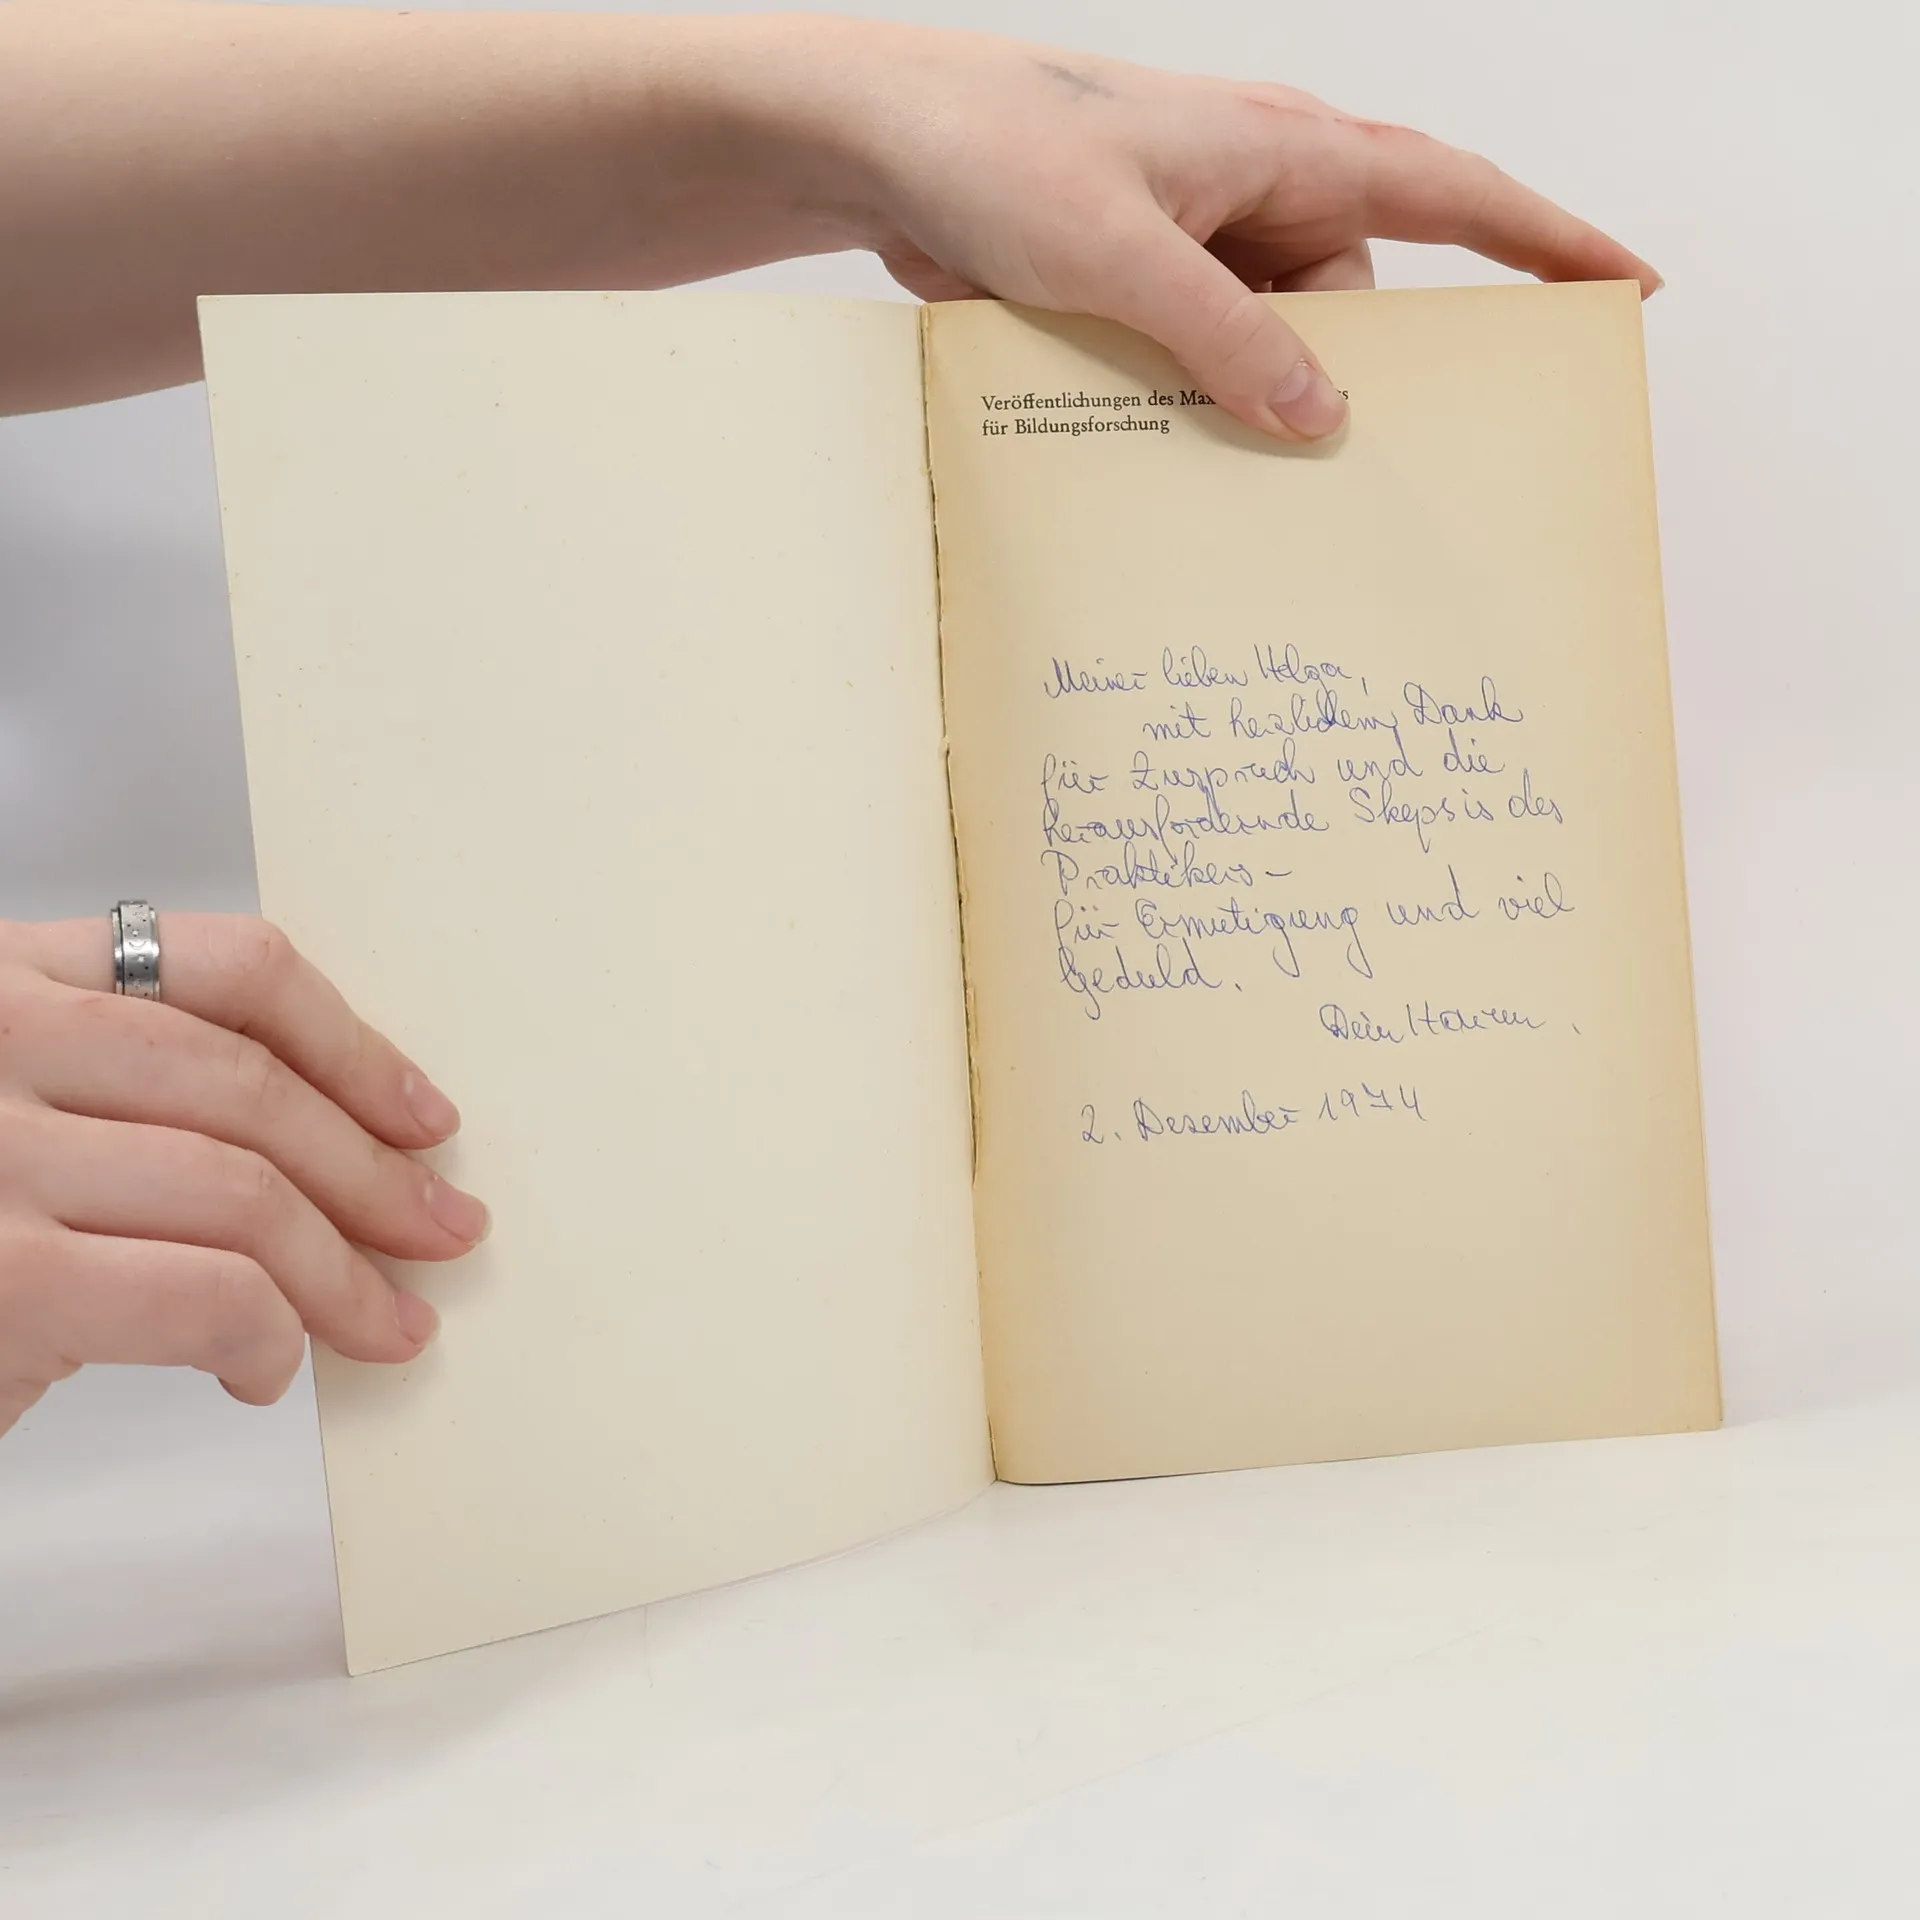 Veröffentlichungen des Max
für Bildungsforschung
Meiner lieben Helga,
mit herzlichem Dank
für Zuspruch und die
herausfordernde Skepsis des
Praktikers –
für Ermutigung und viel
Geduld.
Dein
2. Dezember 1974